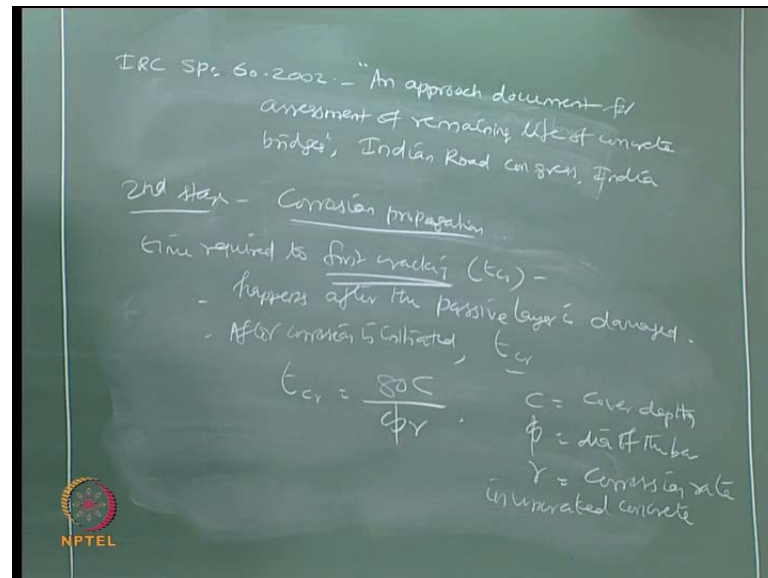 IRC SP: 60.2002 - "An approach document for
assessment of remaining life of concrete
bridges", Indian Road congress, India
2nd stage - Corrosion propagation
time required to first cracking (tcr) -
- happens after the passive layer is damaged.
- After corrosion is initiated, tcr
tcr = 80C / φr .
C = Cover depth
φ = dia of the bar
r = Corrosion rate
in uncracked concrete
NPTEL